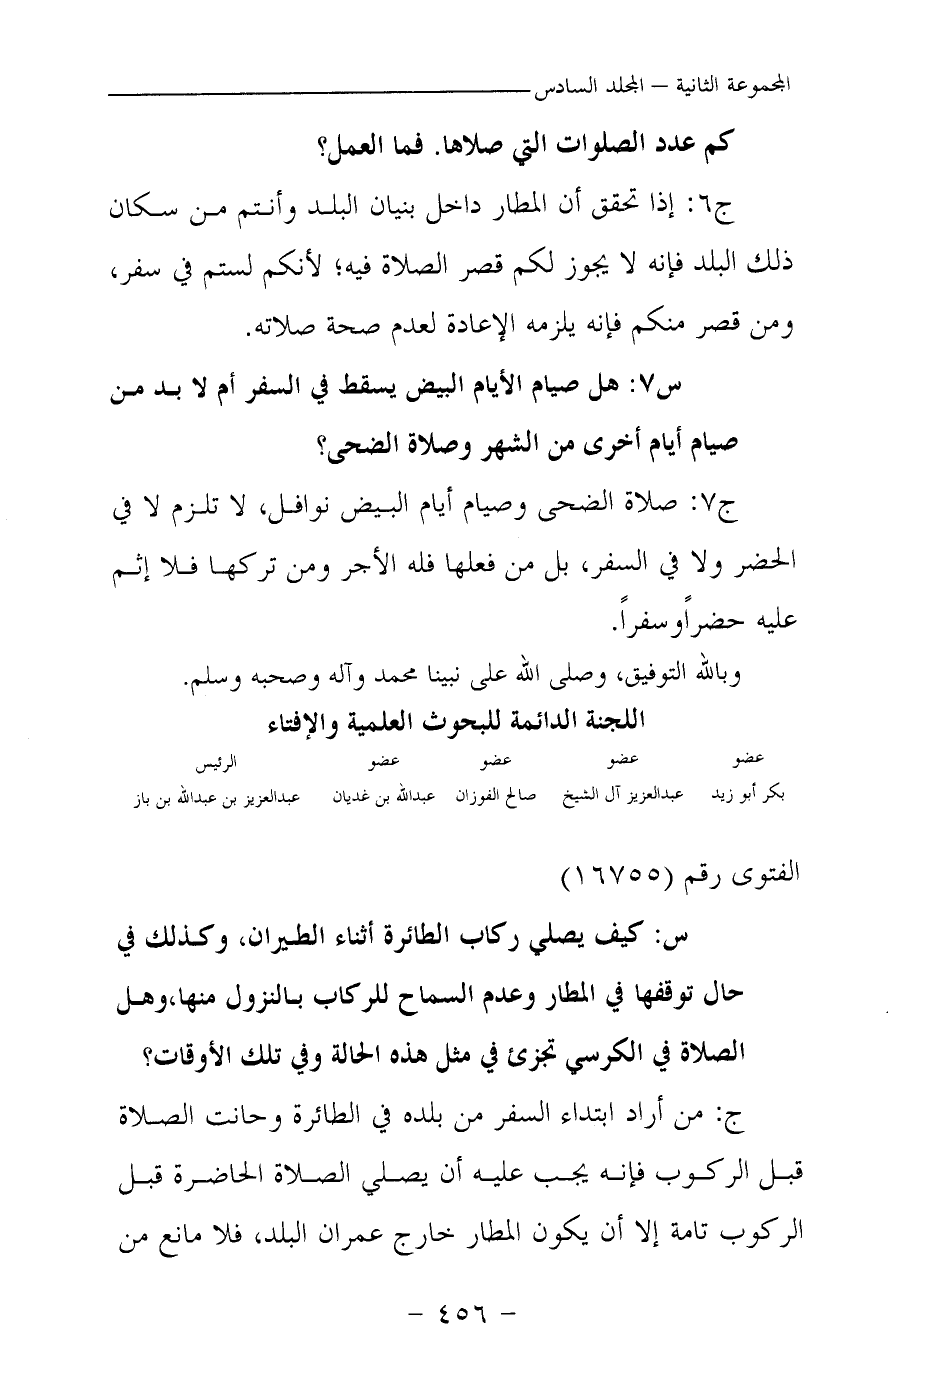 المجموعة الثانية – المجلد السادس
كم عدد الصلوات التي صلاها. فما العمل؟
ج٦: إذا تحقق أن المطار داخل بنيان البلد وأنتم من سكان
ذلك البلد فإنه لا يجوز لكم قصر الصلاة فيه؛ لأنكم لستم في سفر،
ومن قصر منكم فإنه يلزمه الإعادة لعدم صحة صلاته.
س٧: هل صيام الأيام البيض يسقط في السفر أم لا بد من
صيام أيام أخرى من الشهر وصلاة الضحى؟
ج٧: صلاة الضحى وصيام أيام البيض نوافل، لا تلزم لا في
الحضر ولا في السفر، بل من فعلها فله الأجر ومن تركها فلا إثم
عليه حضراً وسفراً.
وبالله التوفيق، وصلى الله على نبينا محمد وآله وصحبه وسلم.
اللجنة الدائمة للبحوث العلمية والإفتاء
عضو عضو عضو عضو الرئيس
بكر أبو زيد عبدالعزيز آل الشيخ صالح الفوزان عبدالله بن غديان عبدالعزيز بن عبدالله بن باز
الفتوى رقم (١٦٧٥٥)
س: كيف يصلي ركاب الطائرة أثناء الطيران، وكذلك في
حال توقفها في المطار وعدم السماح للركاب بالنزول منها،وهل
الصلاة في الكرسي تجزئ في مثل هذه الحالة وفي تلك الأوقات؟
ج: من أراد ابتداء السفر من بلده في الطائرة وحانت الصلاة
قبل الركوب فإنه يجب عليه أن يصلي الصلاة الحاضرة قبل
الركوب تامة إلا أن يكون المطار خارج عمران البلد، فلا مانع من
– ٤٥٦ –